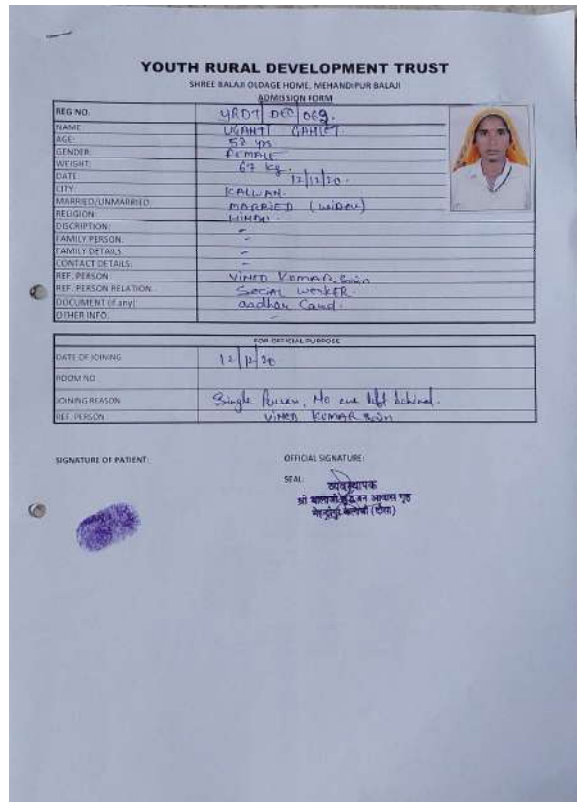 YOUTH RURAL DEVELOPMENT TRUST
SHREE BALAJI OLDAGE HOME, MEHANDIPUR BALAJI
ADMISSION FORM
REG NO. YRDT DEC 069.
NAME
AGE: 52 yrs
GENDER: FEMALE
WEIGHT: 67 kg.
DATE 12/12/20.
CITY
MARRIED/UNMARRIED: MARRIED (WIDOW)
RELIGION: HINDU.
DISCRIPTION: -
FAMILY PERSON: -
FAMILY DETAILS: -
CONTACT DETAILS: -
REF. PERSON VINOD KUMAR
REF. PERSON RELATION. SOCIAL WORKER.
DOCUMENT (if any) aadhar Card.
OTHER INFO. -
FOR OFFICIAL PURPOSE
DATE OF JOINING 12/12/20
ROOM NO
JOINING REASON Single Person, No one left behind.
REF. PERSON VINOD KUMAR
SIGNATURE OF PATIENT:
OFFICIAL SIGNATURE:
SEAL:
व्यवस्थापक
श्री बालाजी आवास गृह
(दौसा)